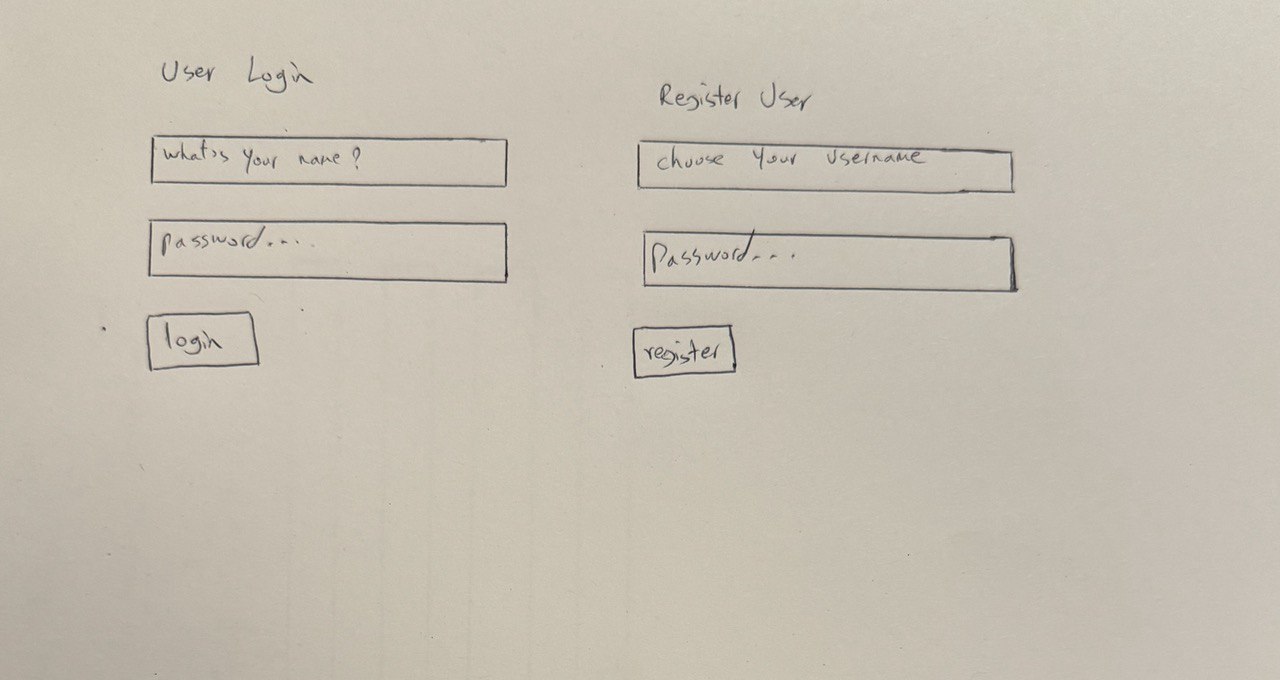 User Login
what's your name?
password....
login
Register User
choose your username
Password...
register